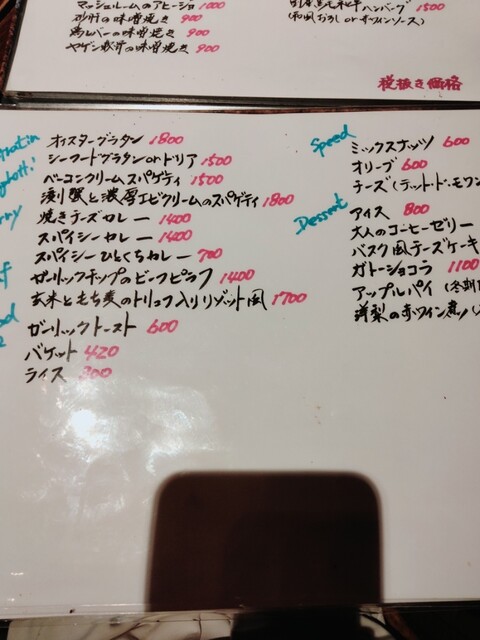 マッシュルームのアヒージョ 1000
砂肝の味噌焼き 900
鶏レバーの味噌焼き 900
ヤゲン軟骨の味噌焼き 900
ハンバーグ 1500
(和風おろし or 赤ワインソース)
税抜き価格
オイスターグラタン 1800
シーフードグラタン or ドリア 1500
ベーコンクリームスパゲティ 1500
渡り蟹と濃厚エビクリームのスパゲティ 1800
焼きチーズカレー 1400
スパイシーカレー 1400
スパイシーひとくちカレー 700
ガーリックチップのビーフピラフ 1400
玄米ともち麦のトリュフ入りリゾット風 1700
ガーリックトースト 600
バゲット 420
ライス 300
Speed
ミックスナッツ 600
オリーブ 600
チーズ(テット・ド・モワン
Dessert
アイス 800
大人のコーヒーゼリー
バスク風チーズケーキ
ガトーショコラ 1100
アップルパイ (冬期
洋梨の赤ワイン煮